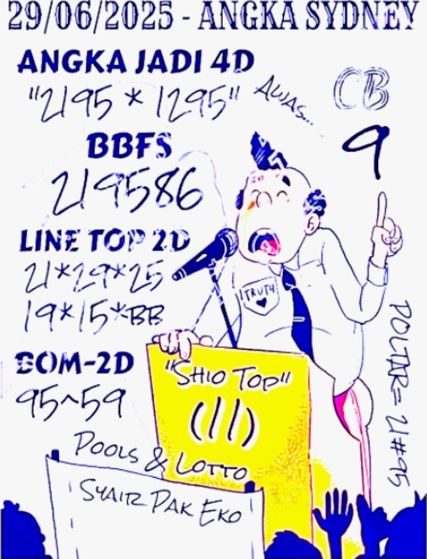 29/06/2025 - ANGKA SYDNEY
ANGKA JADI 4D
"2195 * 1295"
AWAS...
CB
9
BBFS
219586
LINE TOP 2D
21*29*25
19*15*BB
TRUTH
BOM-2D
95~59
"SHIO TOP"
(11)
POLTAR= 21#95
POOLS & LOTTO
SYAIR PAK EKO